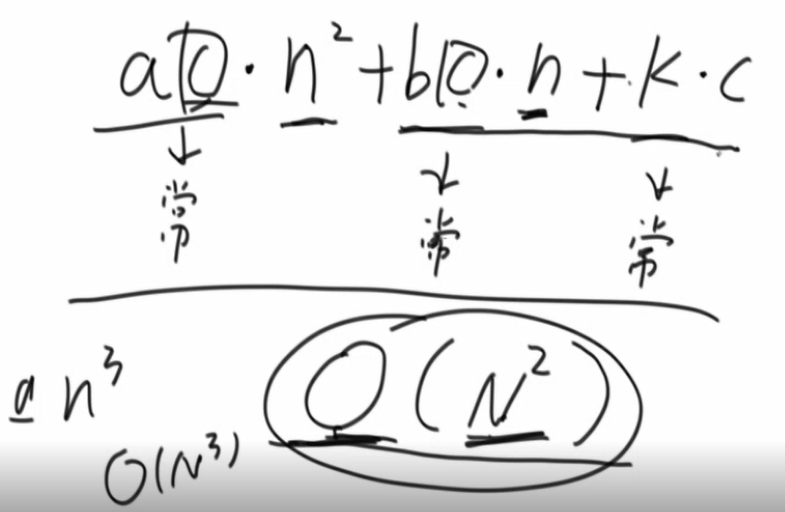 a|0|·n²+b|0·n+k·c
↓ ↓ ↓
常 常 常
a n³ O(N²)
O(N³)